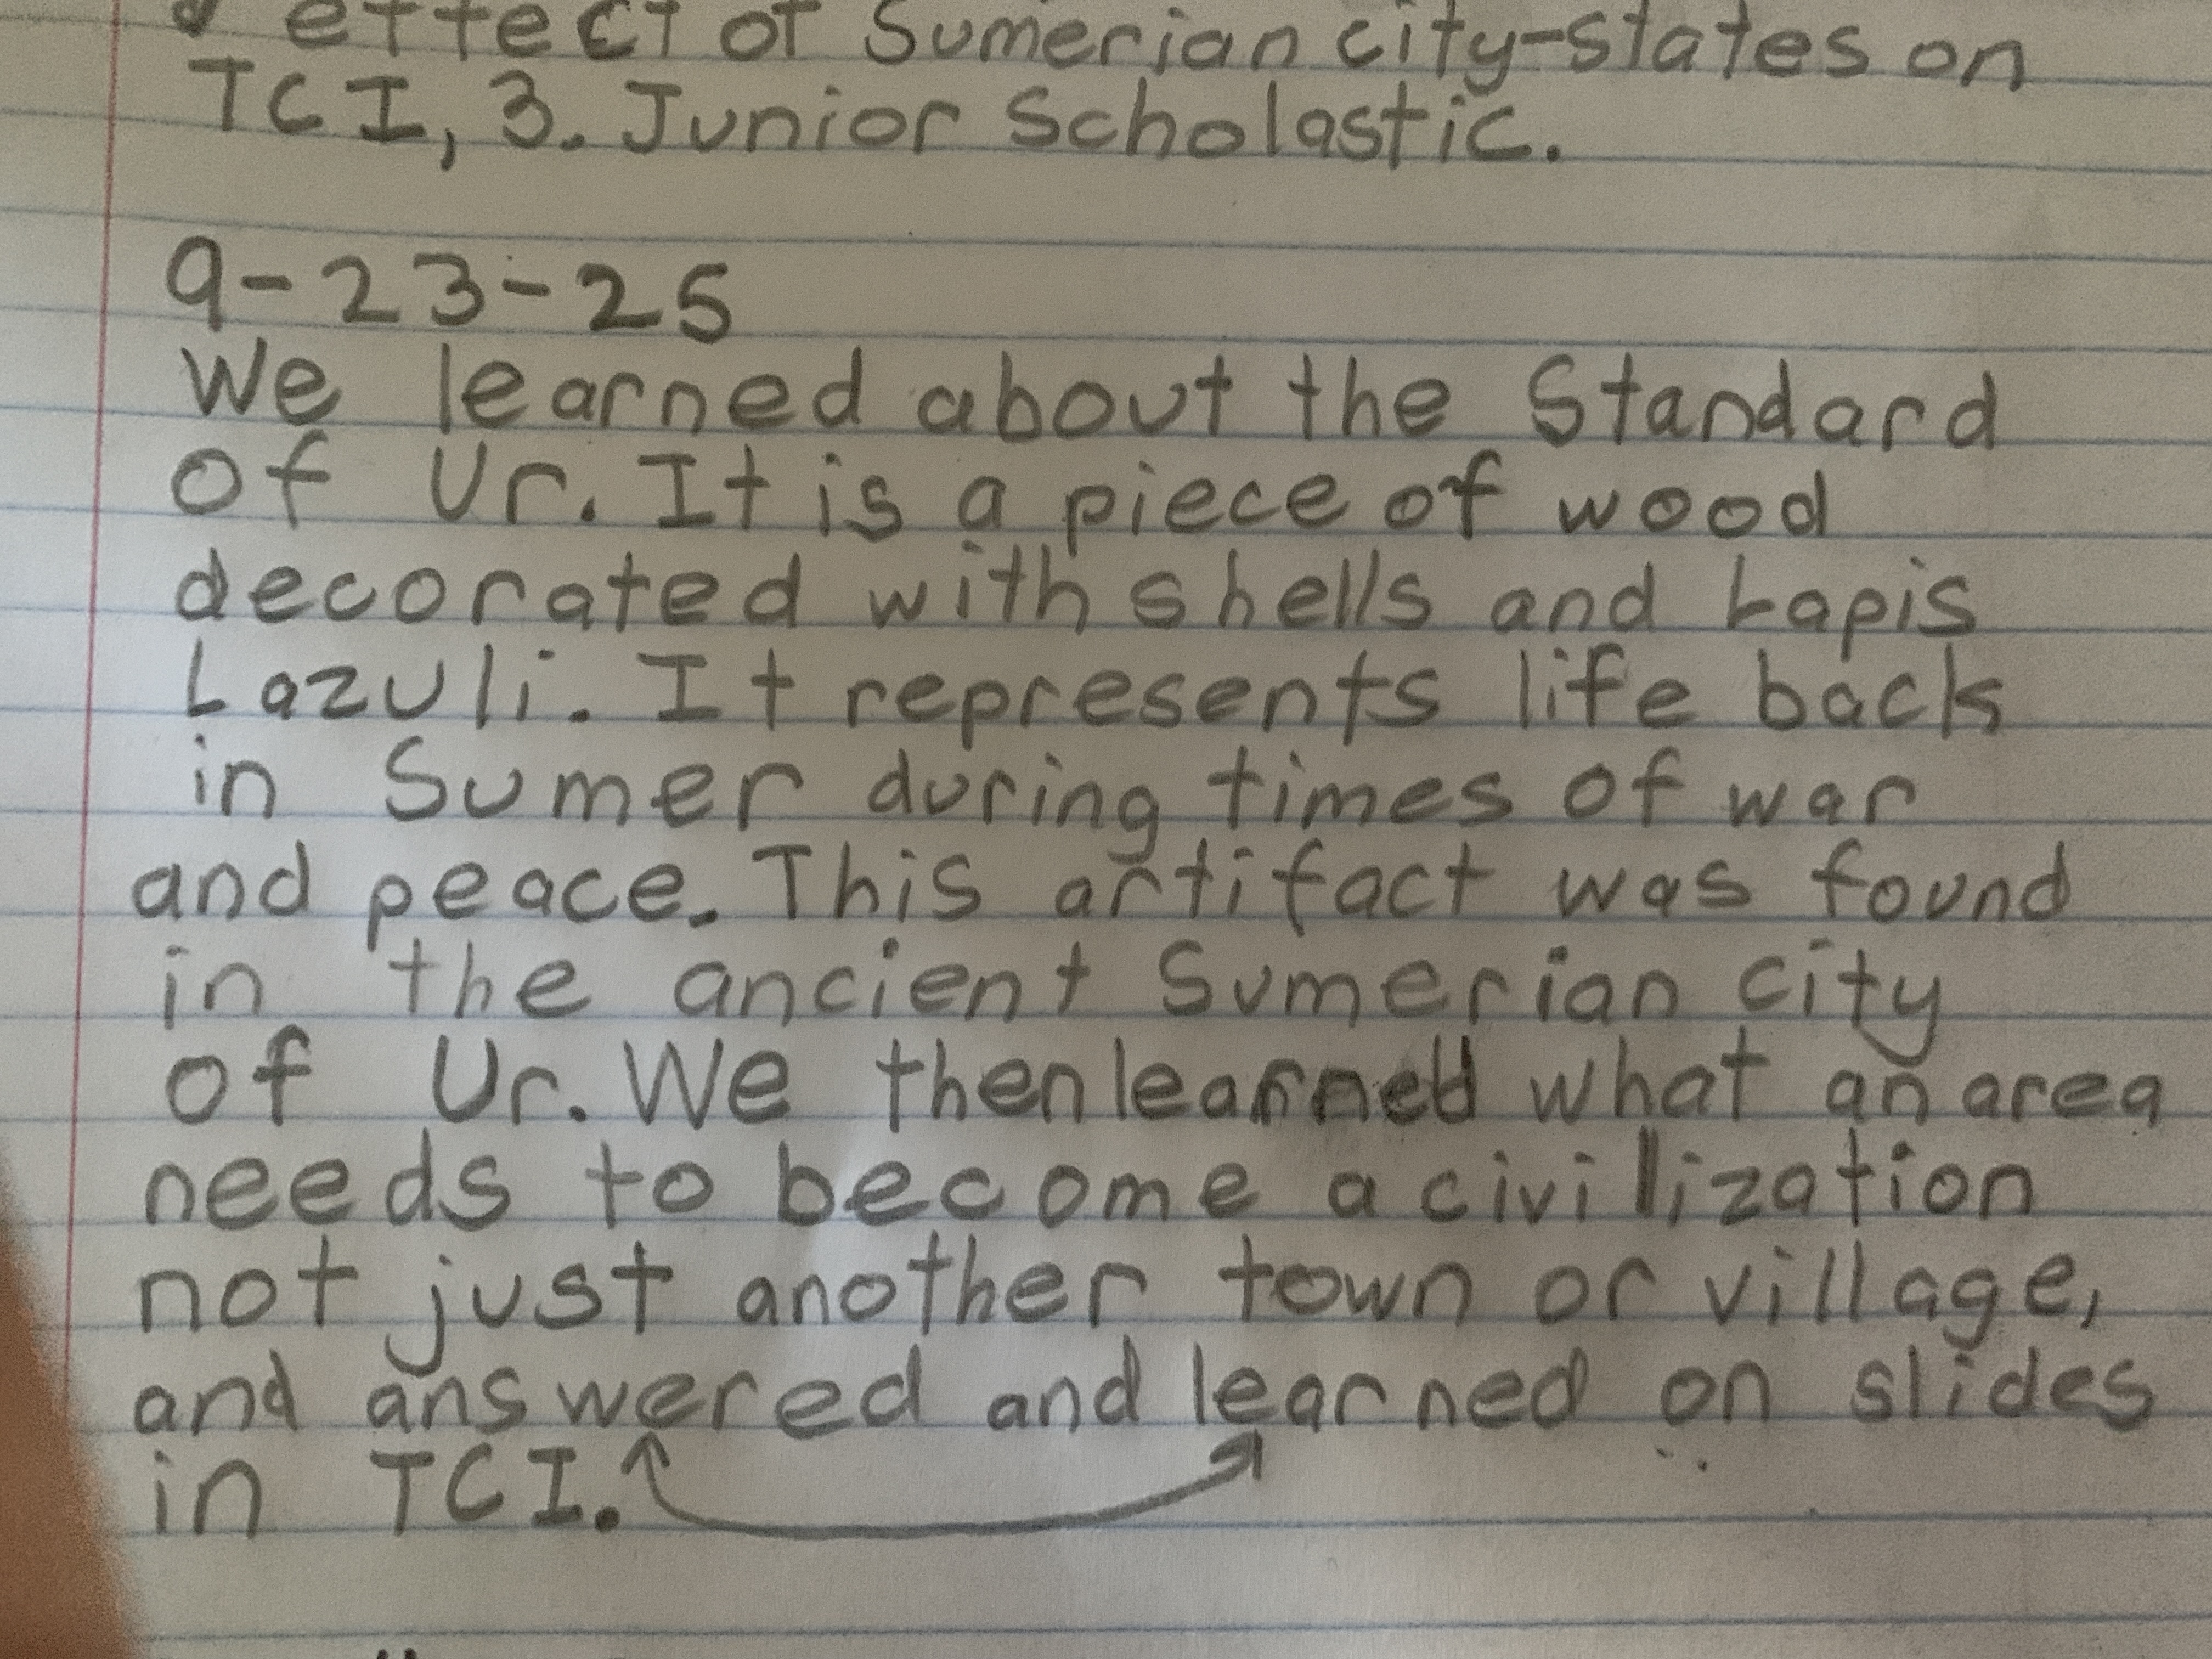 effect of Sumerian city-states on
TCI, 3. Junior Scholastic.
9-23-25
We learned about the Standard
of Ur. It is a piece of wood
decorated with shells and Lapis
Lazuli. It represents life back
in Sumer during times of war
and peace. This artifact was found
in the ancient Sumerian city
of Ur. We then learned what an area
needs to become a civilization
not just another town or village,
and answered and learned on slides
in TCI.